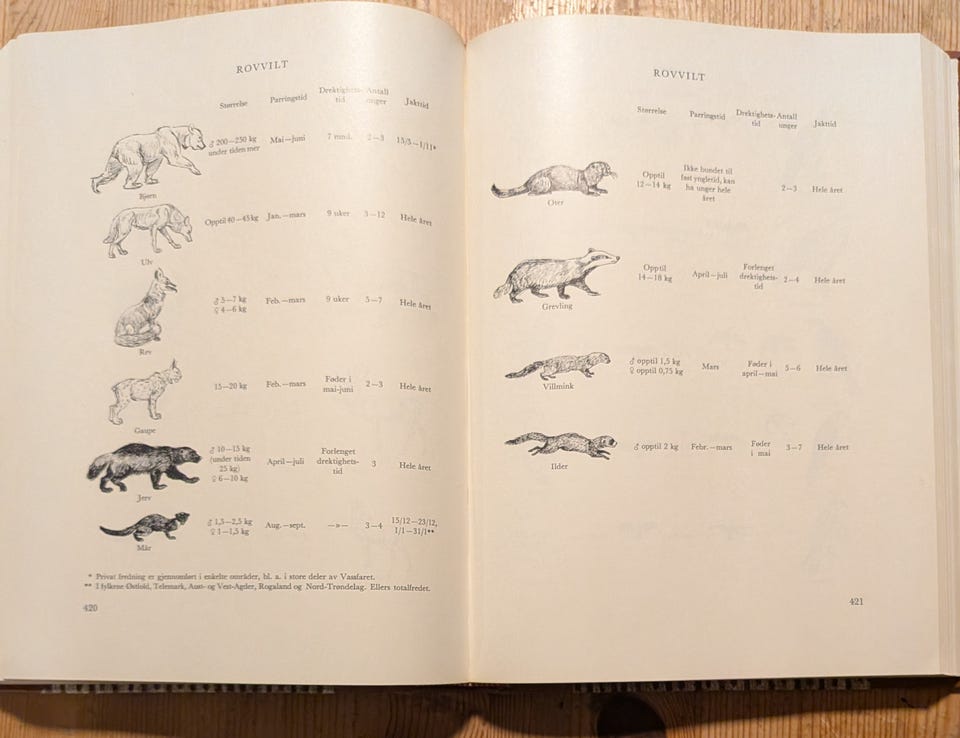 ROVVILT
Størrelse Parringstid Drektighets- Antall Jakttid
tid unger
♂ 200—250 kg Mai—juni 7 mnd. 2—3 15/5—1/11*
under tiden mer
Bjørn
Opptil 40—45 kg Jan.—mars 9 uker 3—12 Hele året
Ulv
♂ 5—7 kg Feb.—mars 9 uker 5—7 Hele året
♀ 4—6 kg
Rev
15—20 kg Feb.—mars Føder i 2—3 Hele året
mai-juni
Gaupe
♂ 10—15 kg
(under tiden April—juli Forlenget 3 Hele året
25 kg) drektighets-
♀ 6—10 kg tid
Jerv
♂ 1,5—2,5 kg Aug.—sept. —»— 3—4 15/12—23/12,
♀ 1—1,5 kg 1/1—31/1**
Mår
* Privat fredning er gjennomført i enkelte områder, bl. a. i store deler av Vassfaret.
** I fylkene Østfold, Telemark, Aust- og Vest-Agder, Rogaland og Nord-Trøndelag. Ellers totalfredet.
420
ROVVILT
Størrelse Parringstid Drektighets- Antall Jakttid
tid unger
Opptil Ikke bundet til 2—3 Hele året
12—14 kg fast yngletid, kan
ha unger hele
året
Oter
Opptil April—juli Forlenget 2—4 Hele året
14—18 kg drektighets-
tid
Grevling
♂ opptil 1,5 kg Mars Føder i 5—6 Hele året
♀ opptil 0,75 kg april—mai
Villmink
♂ opptil 2 kg Febr.—mars Føder 3—7 Hele året
i mai
Ilder
421